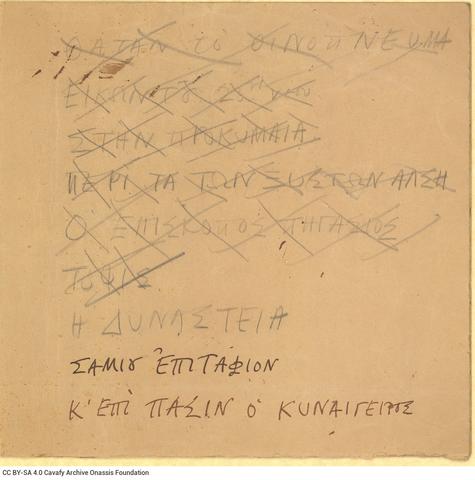 ΘΑΤΑΝ ΤΟ ΟΙΝΟΠΝΕΥΜΑ
ΕΙΚΩΝ
ΣΤΗΝ ΠΡΟΚΥΜΑΙΑ
ΠΕΡΙ ΤΑ ΤΩΝ ΞΥΣΤΩΝ ΑΛΣΗ
Ο ΕΠΙΣΚΟΠΟΣ ΠΗΓΑΣΙΟΣ
Η ΔΥΝΑΣΤΕΙΑ
ΣΑΜΙΟΥ ἘΠΙΤΑΦΙΟΝ
Κ' ἘΠΙ ΠΑΣΙΝ Ὁ ΚΥΝΑΙΓΕΙΡΟΣ
CC BY-SA 4.0 Cavafy Archive Onassis Foundation